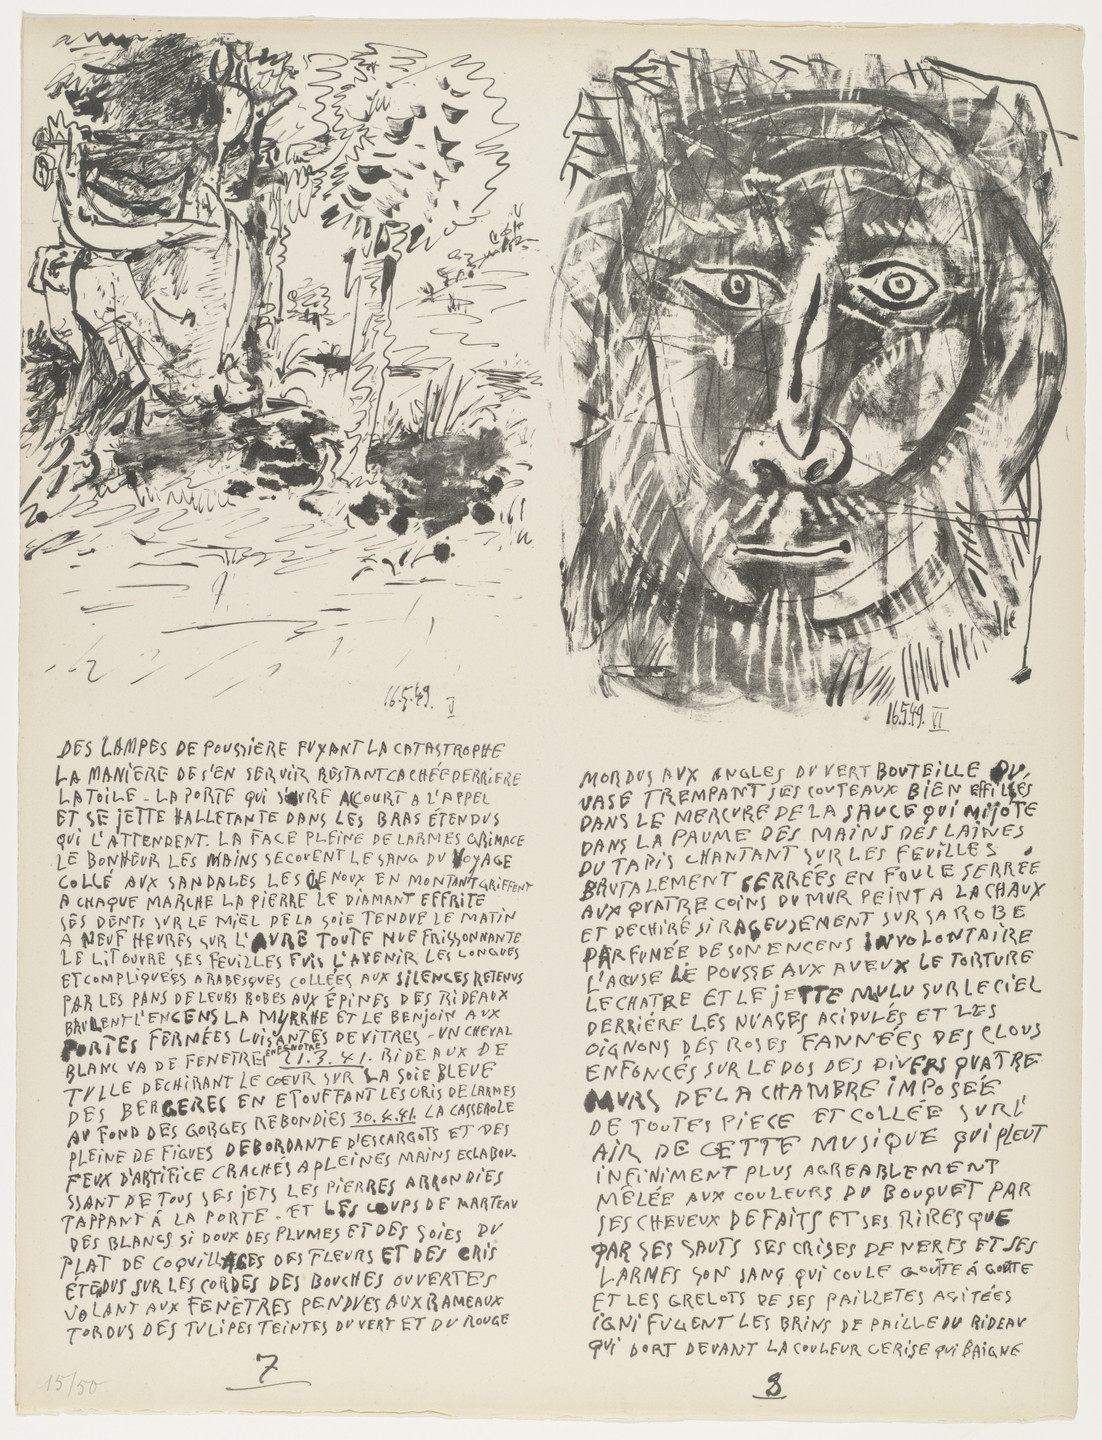 16.5.49. V
DES LAMPES DE POUSSIERE FUYANT LA CATASTROPHE
LA MANIERE DE S'EN SERVIR RESTANT CACHÉE DERRIERE
LA TOILE - LA PORTE QUI S'OUVRE ACCOURT A L'APPEL
ET SE JETTE HALLETANTE DANS LES BRAS ETENDUS
QUI L'ATTENDENT. LA FACE PLEINE DE LARMES GRIMACE
LE BONHEUR LES MAINS SECOUENT LE SANG DU VOYAGE
COLLÉ AUX SANDALES LES GENOUX EN MONTANT GRIFFENT
A CHAQUE MARCHE LA PIERRE LE DIAMANT EFFRITE
SES DENTS SUR LE MIEL DE LA SOIE TENDUE LE MATIN
A NEUF HEURES SUR L' TOUTE NUE FRISSONNANTE
LE LIT OUVRE SES FEUILLES L'AVENIR LES LONGUES
ET COMPLIQUÉES ARABESQUES COLLÉES AUX SILENCES RETENUS
PAR LES PANS DE LEURS ROBES AUX ÉPINES DES RIDEAUX
BRULENT L'ENCENS LA MYRRHE ET LE BENJOIN AUX
PORTES FERMÉES LUISANTES DE VITRES - UN CHEVAL
BLANC VA DE FENETRE EN FENETRE 21.3.41. RIDEAUX DE
TULLE DECHIRANT LE COEUR SUR LA SOIE BLEUE
DES BERGERES EN ETOUFFANT LES CRIS DE LARMES
AU FOND DES GORGES REBONDIES 30.4.41. LA CASSEROLE
PLEINE DE FIGUES DEBORDANTE D'ESCARGOTS ET DES
FEUX D'ARTIFICE CRACHÉS A PLEINES MAINS ECLABOU-
SSANT DE TOUS SES JETS LES PIERRES ARRONDIES
TAPPANT À LA PORTE - ET LES COUPS DE MARTEAU
DES BLANCS SI DOUX DES PLUMES ET DES SOIES DU
PLAT DE COQUILLAGES DES FLEURS ET DES CRIS
ÉTENDUS SUR LES CORDES DES BOUCHES OUVERTES
VOLANT AUX FENETRES PENDUES AUX RAMEAUX
TORDUS DES TULIPES TEINTES DU VERT ET DU ROUGE
7
15/50
16.5.49. VI
MORDUS AUX ANGLES DU VERT BOUTEILLE DU
VASE TREMPANT SES COUTEAUX BIEN EFFILÉS
DANS LE MERCURE DE LA SAUCE QUI MIJOTE
DANS LA PAUME DES MAINS DES LAINES
DU TAPIS CHANTANT SUR LES FEUILLES
BRUTALEMENT SERRÉES EN FOULE SERRÉE
AUX QUATRE COINS DU MUR PEINT A LA CHAUX
ET DECHIRÉ SI RAGEUSEMENT SUR SA ROBE
PARFUMÉE DE SON ENCENS INVOLONTAIRE
L'ACUSE LE POUSSE AUX AVEUX LE TORTURE
LE CHATRE ET LE JETTE SUR LE CIEL
DERRIÉRE LES NUAGES ACIDULÉS ET LES
OIGNONS DES ROSES FANNÉES DES CLOUS
ENFONCÉS SUR LE DOS DES DIVERS QUATRE
MURS DE LA CHAMBRE IMPOSÉE
DE TOUTES PIECE ET COLLÉE SUR L'
AIR DE CETTE MUSIQUE QUI PLEUT
INFINIMENT PLUS AGREABLEMENT
MÊLÉE AUX COULEURS DU BOUQUET PAR
SES CHEVEUX DEFAITS ET SES RIRES QUE
PAR SES SAUTS SES CRISES DE NERFS ET SES
LARMES SON SANG QUI COULE GOUTTE À GOUTTE
ET LES GRELOTS DE SES PAILLETES AGITÉES
IGNIFUGENT LES BRINS DE PAILLE DU RIDEAU
QUI DORT DEVANT LA COULEUR CERISE QUI BAIGNE
8